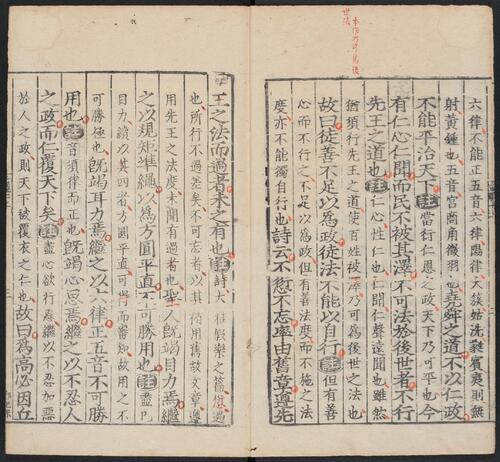 本作乃可爲後
世法
六律不能正五音六律陽律大簇姑洗蕤賓夷則無
射黃鍾也五音宮商角徵羽也堯舜之道不以仁政
不能平治天下註當行仁恩之政天下乃可平也今
有仁心仁聞而民不被其澤不可法於後世者不行
先王之道也註仁心性仁也仁聞仁聲遠聞也雖然
猶須行先王之道使百姓被澤乃可爲後世之法也
故曰徒善不足以爲政徒法不能以自行註但有善
心而不行之不足以爲政但有善法度而不施之法
度亦不能獨自行也詩云不愆不忘率由舊章遵先
王之法而過者未之有也註詩大雅假樂之篇愆過
也所行不過差矣不可忘者以其循用舊故文章遵
用先王之法度未聞有過者也聖人旣竭目力焉繼
之以規矩準繩以爲方圓平直不可勝用也註盡己
目力續以其四者方圓平直可得而審知故用之不
可勝極也旣竭耳力焉繼之以六律正五音不可勝
用也註音須律而正也旣竭心思焉繼之以不忍人
之政而仁覆天下矣註盡心欲行恩繼以不忍加惡
於人之政則天下被覆衣之仁也故曰爲高必因丘